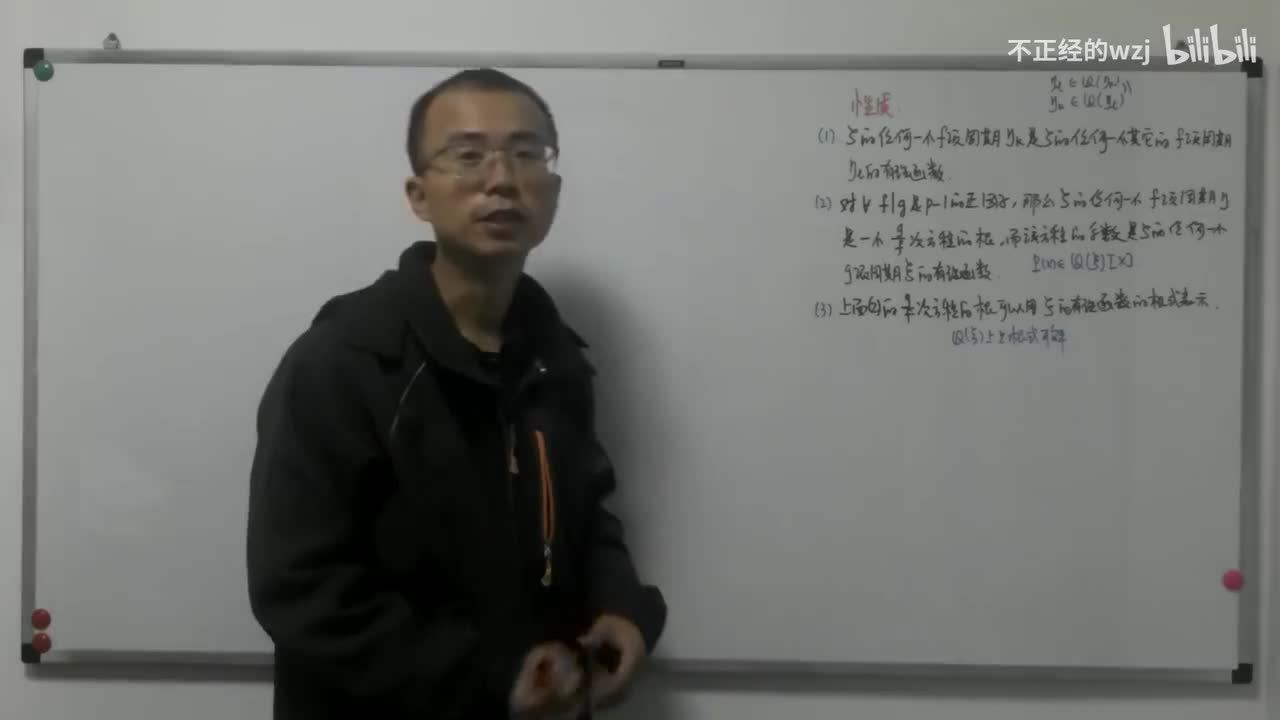 不正经的wzj bilibili
η_l ∈ Q(η_k)
η_k ∈ Q(η_l)
性质.
(1) ζ的任何一个f项周期η_k是ζ的任何一个其它的f项周期
η_l的有理函数.
(2) 对∀ f|g是p-1的正因子, 那么ζ的任何一个f项周期η
是一个g/f次方程的根, 而该方程的系数是ζ的任何一个
g项周期ξ的有理函数. P(x)∈Q(ξ)[X]
(3) 上面(2)的g/f次方程的根可以用ξ的有理函数的根式表示.
Q(ξ)上是根式可解